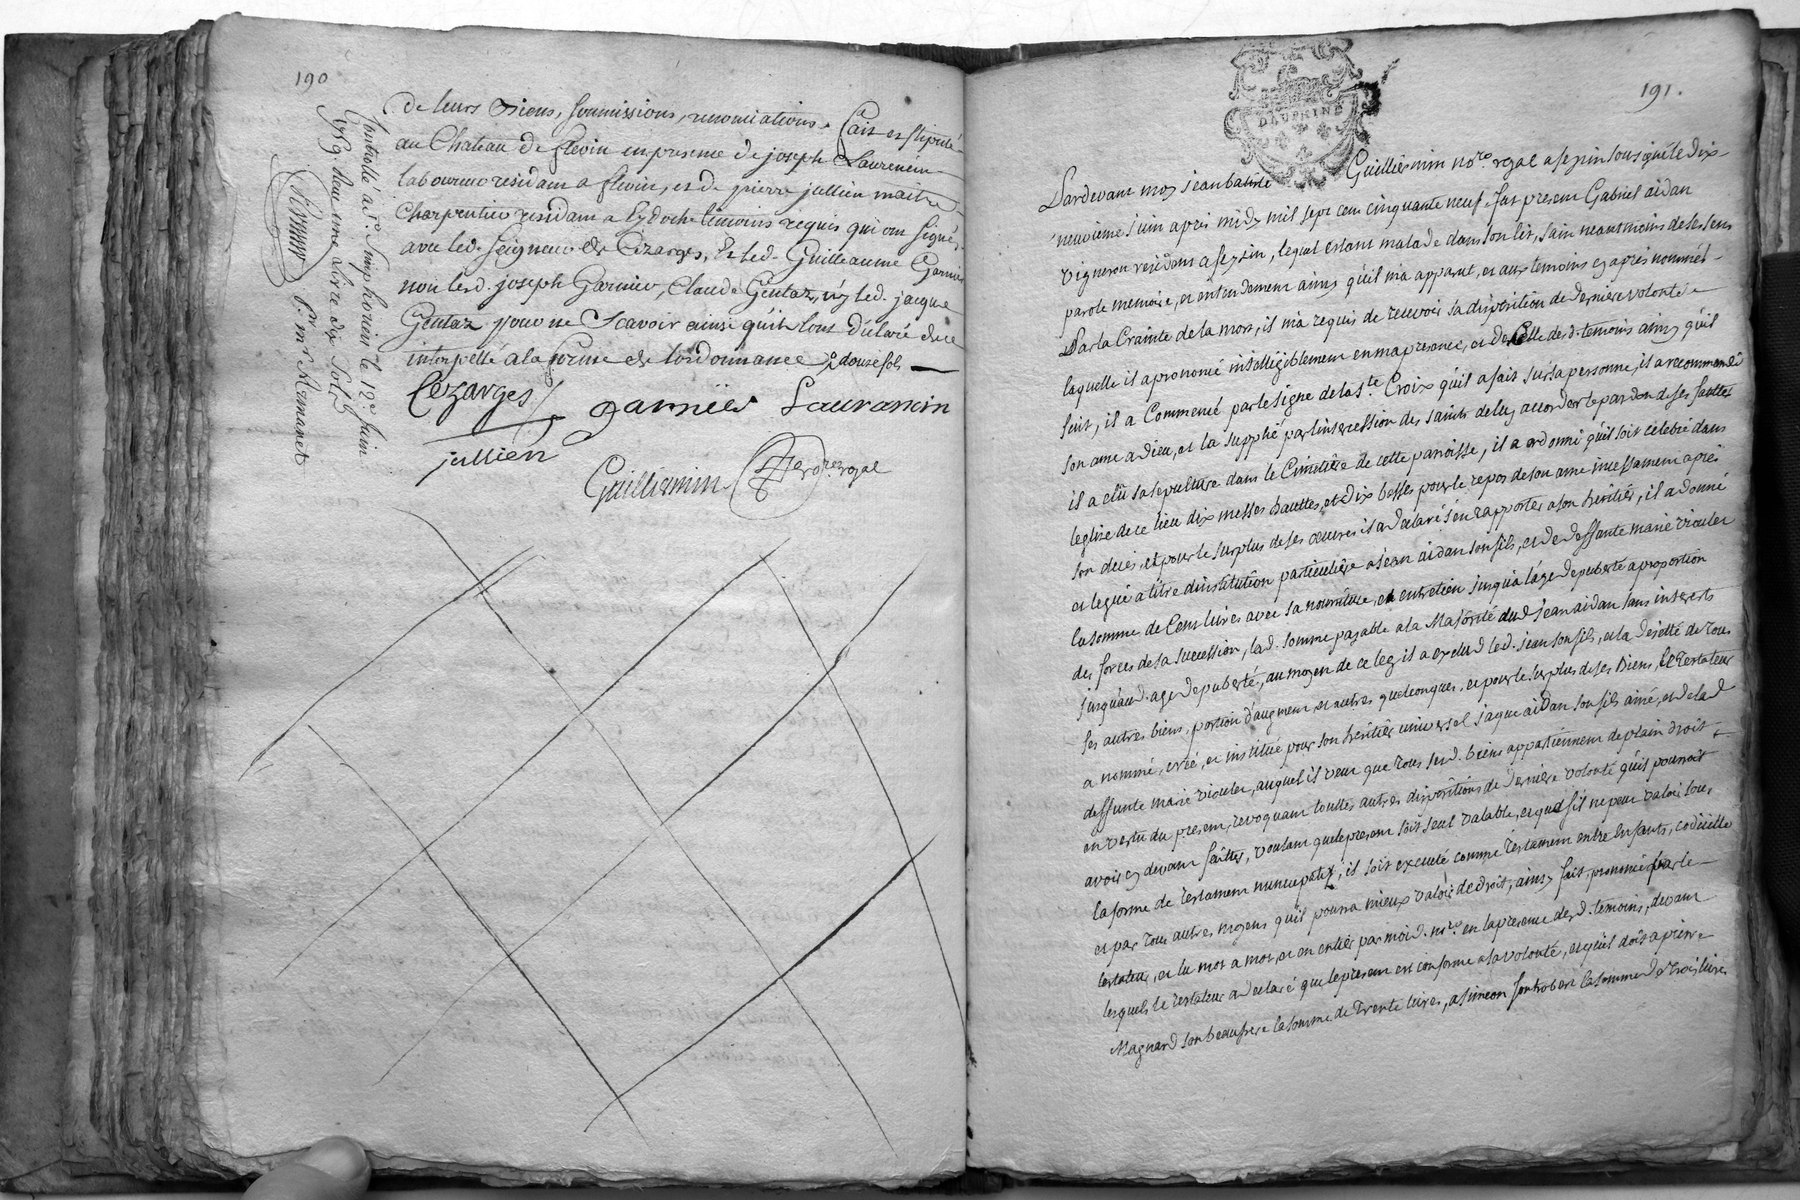 190
de leurs Biens, soumissions, renonciations, fait et stipulé
au Chateau de flevin en presence de joseph Laurencin
laboureur residant a flevin, et de pierre jullien maitre
Charpentier residant a Eydoche temoins requis qui ont signé
avec led. Seigneur de Cezarges, et led. Guilleaume Garnier
non lesd. joseph Garnier, Claude Gentaz, n'y led. jacque
Gentaz pour ne Scavoir ainsi qu'ils l'ont déclaré de ce
interpellé a la forme de l'ordonnance, douze sols
Cezarges
garnier Laurancin
jullien
Guilliermin no.re royal
Controllé a St. Simphorien le 12e. Juin
1759. Reçu une livre dix sols
Pr. mr. Armanet
191.
DAUPHINE
Pardevant moy jean batiste Guilliermin no.re royal a seyzin soussigné le dix
neuvieme juin apres midy mil sept cent cinquante neuf fut present Gabriel aidan
vigneron residant a seyssin, lequel estant malade dans son lit, sain neantmoins de ses sens
parole memoire, et entendement ainsy qu'il m'a apparut, et aux temoins cy apres nommés
Par la Crainte de la mort, il m'a requis de recevoir sa disposition de derniere volonté
laquelle il a prononcé intelligiblement en ma presence, et de Celle desd. temoins ainsy qu'il
suit, il a Commencé par le signe de la Ste. Croix qu'il a fait sur sa personne, il a recommandé
son ame a Dieu, et la supplié par l'intercession des saints de luy accorder le pardon de ses fauttes
il a élü sa sepulture dans le Cimetiére de cette parroisse, il a ordonné qu'il soit célebré dans
leglise de ce lieu dix messes hauttes, et dix basses pour le repos de son ame incessament apres
son decés, et pour le surplus de ses œuvres il a declaré s'en rapporter a son héritier, il a donné
et legué a titre d'institution particuliére a jean aidan son fils, et de deffunte marie vicules
la somme de Cent livres avec sa nourriture, et entretien jusqu'a l'age de puberté a proportion
des forces de sa succession, lad. somme payable a la Majorité dud jean aidan sans interets
jusqu'aud. age de puberté, au moyen de ce leg il a exclud led. jean son fils, et la dejetté de tous
ses autres biens, portion d'augment et autres quelconques, et pour le surplus de ses Biens, le Testateur
a nommé, créé, et institué pour son héritier universel jaque aidan son fils ainé, et de lad
deffunte marie vicules, auquel il veut que tous sesd. biens appartiennent de plain droit
en vertu du present, revoquant touttes autres dispositions de derniere volonté qu'il pourroit
avoir cy devant faittes, voulant que le present soit seul valable, et que s'il ne peut valoir sous
la forme de testament nuncupatif, il soit executé comme testament entre Enfants, codicille
et par tous autres moyens qu'il pourra mieux valoir de droit, ainsy fait, prononcé par le
testateur, et lu mot a mot, et en entier par moi d. no.re en la presence desd. temoins, devant
lesquels le testateur a declaré que le present est conforme a sa volonté, et qu'il doit a pierre
Magnard son beaufrere la somme de Trente livres, a simeon la somme de Trois livres